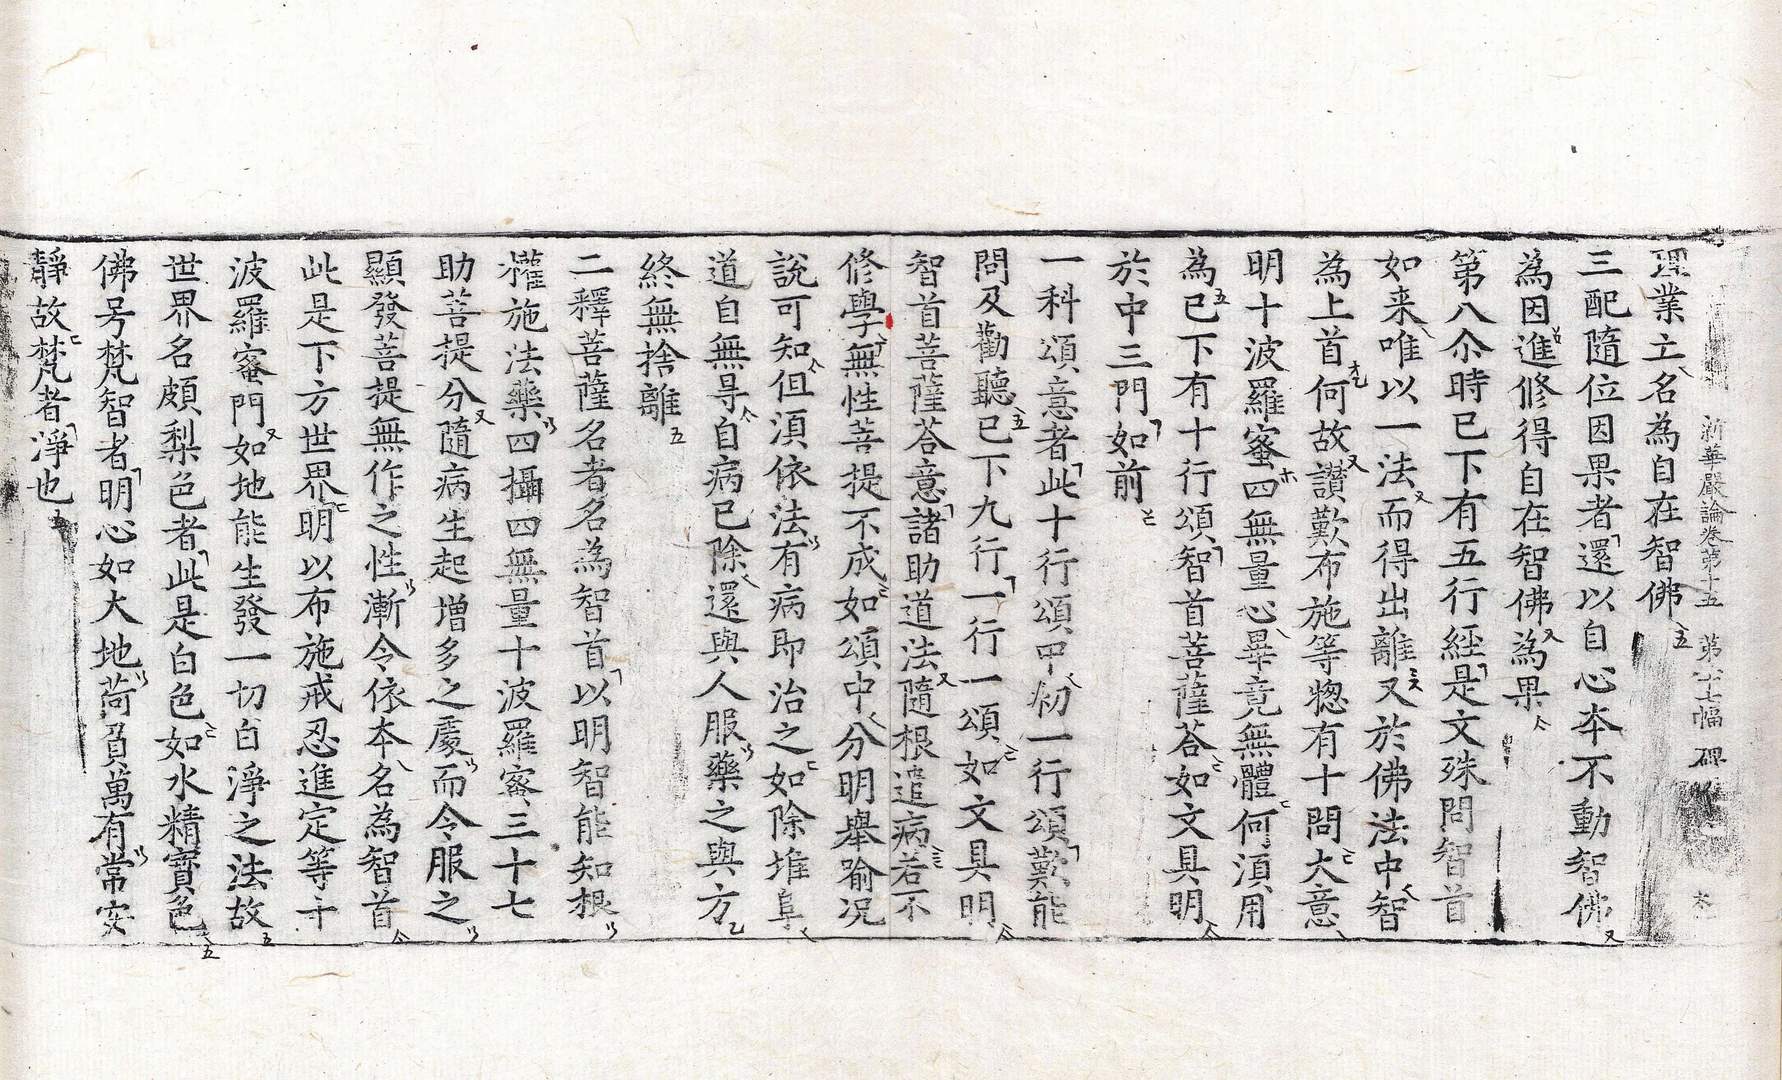 理業立名為自在智佛
新華嚴論卷第十五　第　七幅　碑
三配隨位因果者還以自心本不動智佛
為因進修得自在智佛為果
第八尒時已下有五行經是文殊問智首
如来唯以一法而得出離又於佛法中智
為上首何故讃歎布施等惣有十問大意
明十波羅蜜四無量心畢竟無體何湏用
為已下有十行頌智首菩薩荅如文具明
於中三門如前
一科頌意者此十行頌中初一行頌歎能
問及勸聽已下九行一行一頌如文具明
智首菩薩荅意諸助道法隨根遣病若不
修學無性菩提不成如頌中分明舉喻况
說可知但湏依法有病即治之如除堆阜
道自無㝵自病已除還與人服藥之與方
終無捨離
二釋菩薩名者名為智首以明智能知根
權施法藥四攝四無量十波羅蜜三十七
助菩提分隨病生起增多之處而令服之
顯發菩提無作之性漸令依本名為智首
此是下方世界明以布施戒忍進定等十
波羅蜜門如地能生發一切白淨之法故
世界名頗梨色者此是白色如水精寶色
佛号梵智者明心如大地荷負萬有常安
靜故梵者淨也